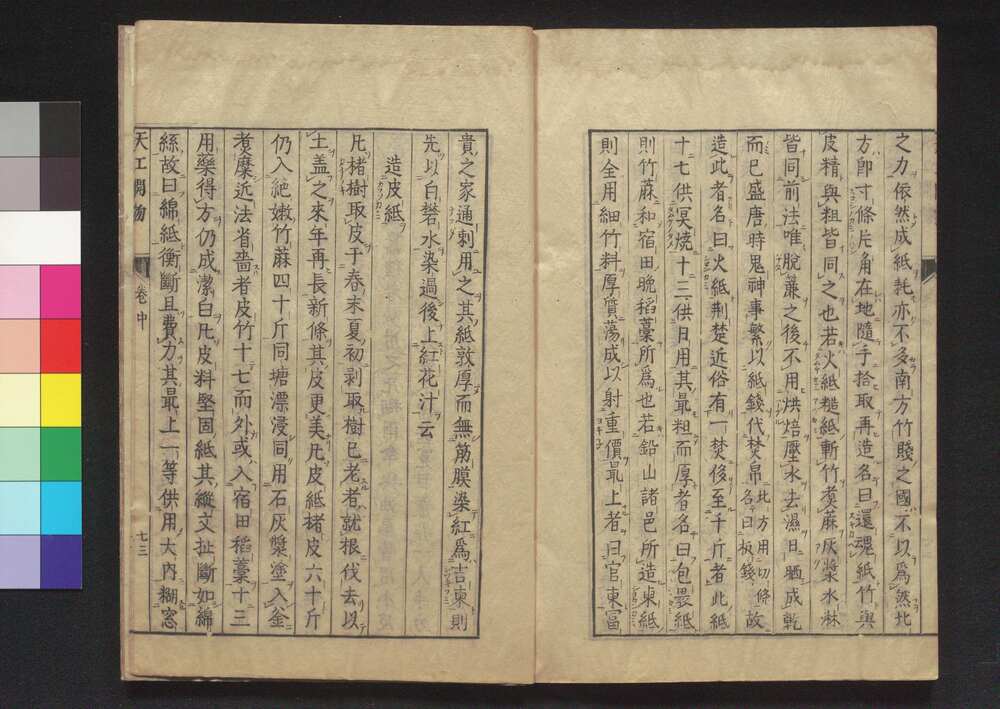 之力依然成紙耗亦不多南方竹賤之國不以爲然北
方卽寸條片角在地隨手拾取再造名曰還魂紙竹與
皮精與粗皆同之也若火紙糙紙斬竹煑蔴灰漿水淋
皆同前法唯脫簾之後不用烘焙壓水去濕日晒成乾
而已盛唐時鬼神事繁以紙錢代焚帛北方用切條名曰板錢故
造此者名曰火紙荆楚近俗有一焚侈至千斤者此紙
十七供冥燒十三供日用其最粗而厚者名曰包褁紙
則竹蔴和宿田晚稻藁所爲也若鉛山諸邑所造柬紙
則全用細竹料厚質蕩成以射重價最上者曰官柬富
貴之家通刺用之其紙敦厚而無筋膜染紅爲吉柬則
先以白礬水染過後上紅花汁云
造皮紙
凡楮樹取皮于春末夏初剥取樹已老者就根伐去以
土盖之來年再長新條其皮更美凡皮紙楮皮六十斤
仍入絶嫩竹蔴四十斤同塘漂浸同用石灰漿塗入釜
煑糜近法省嗇者皮竹十七而外或入宿田稻藁十三
用藥得方仍成潔白凡皮料堅固紙其縱文扯斷如綿
絲故曰綿紙衡斷且費力其最上一等供用大內糊窓
天工開物
卷中
七三